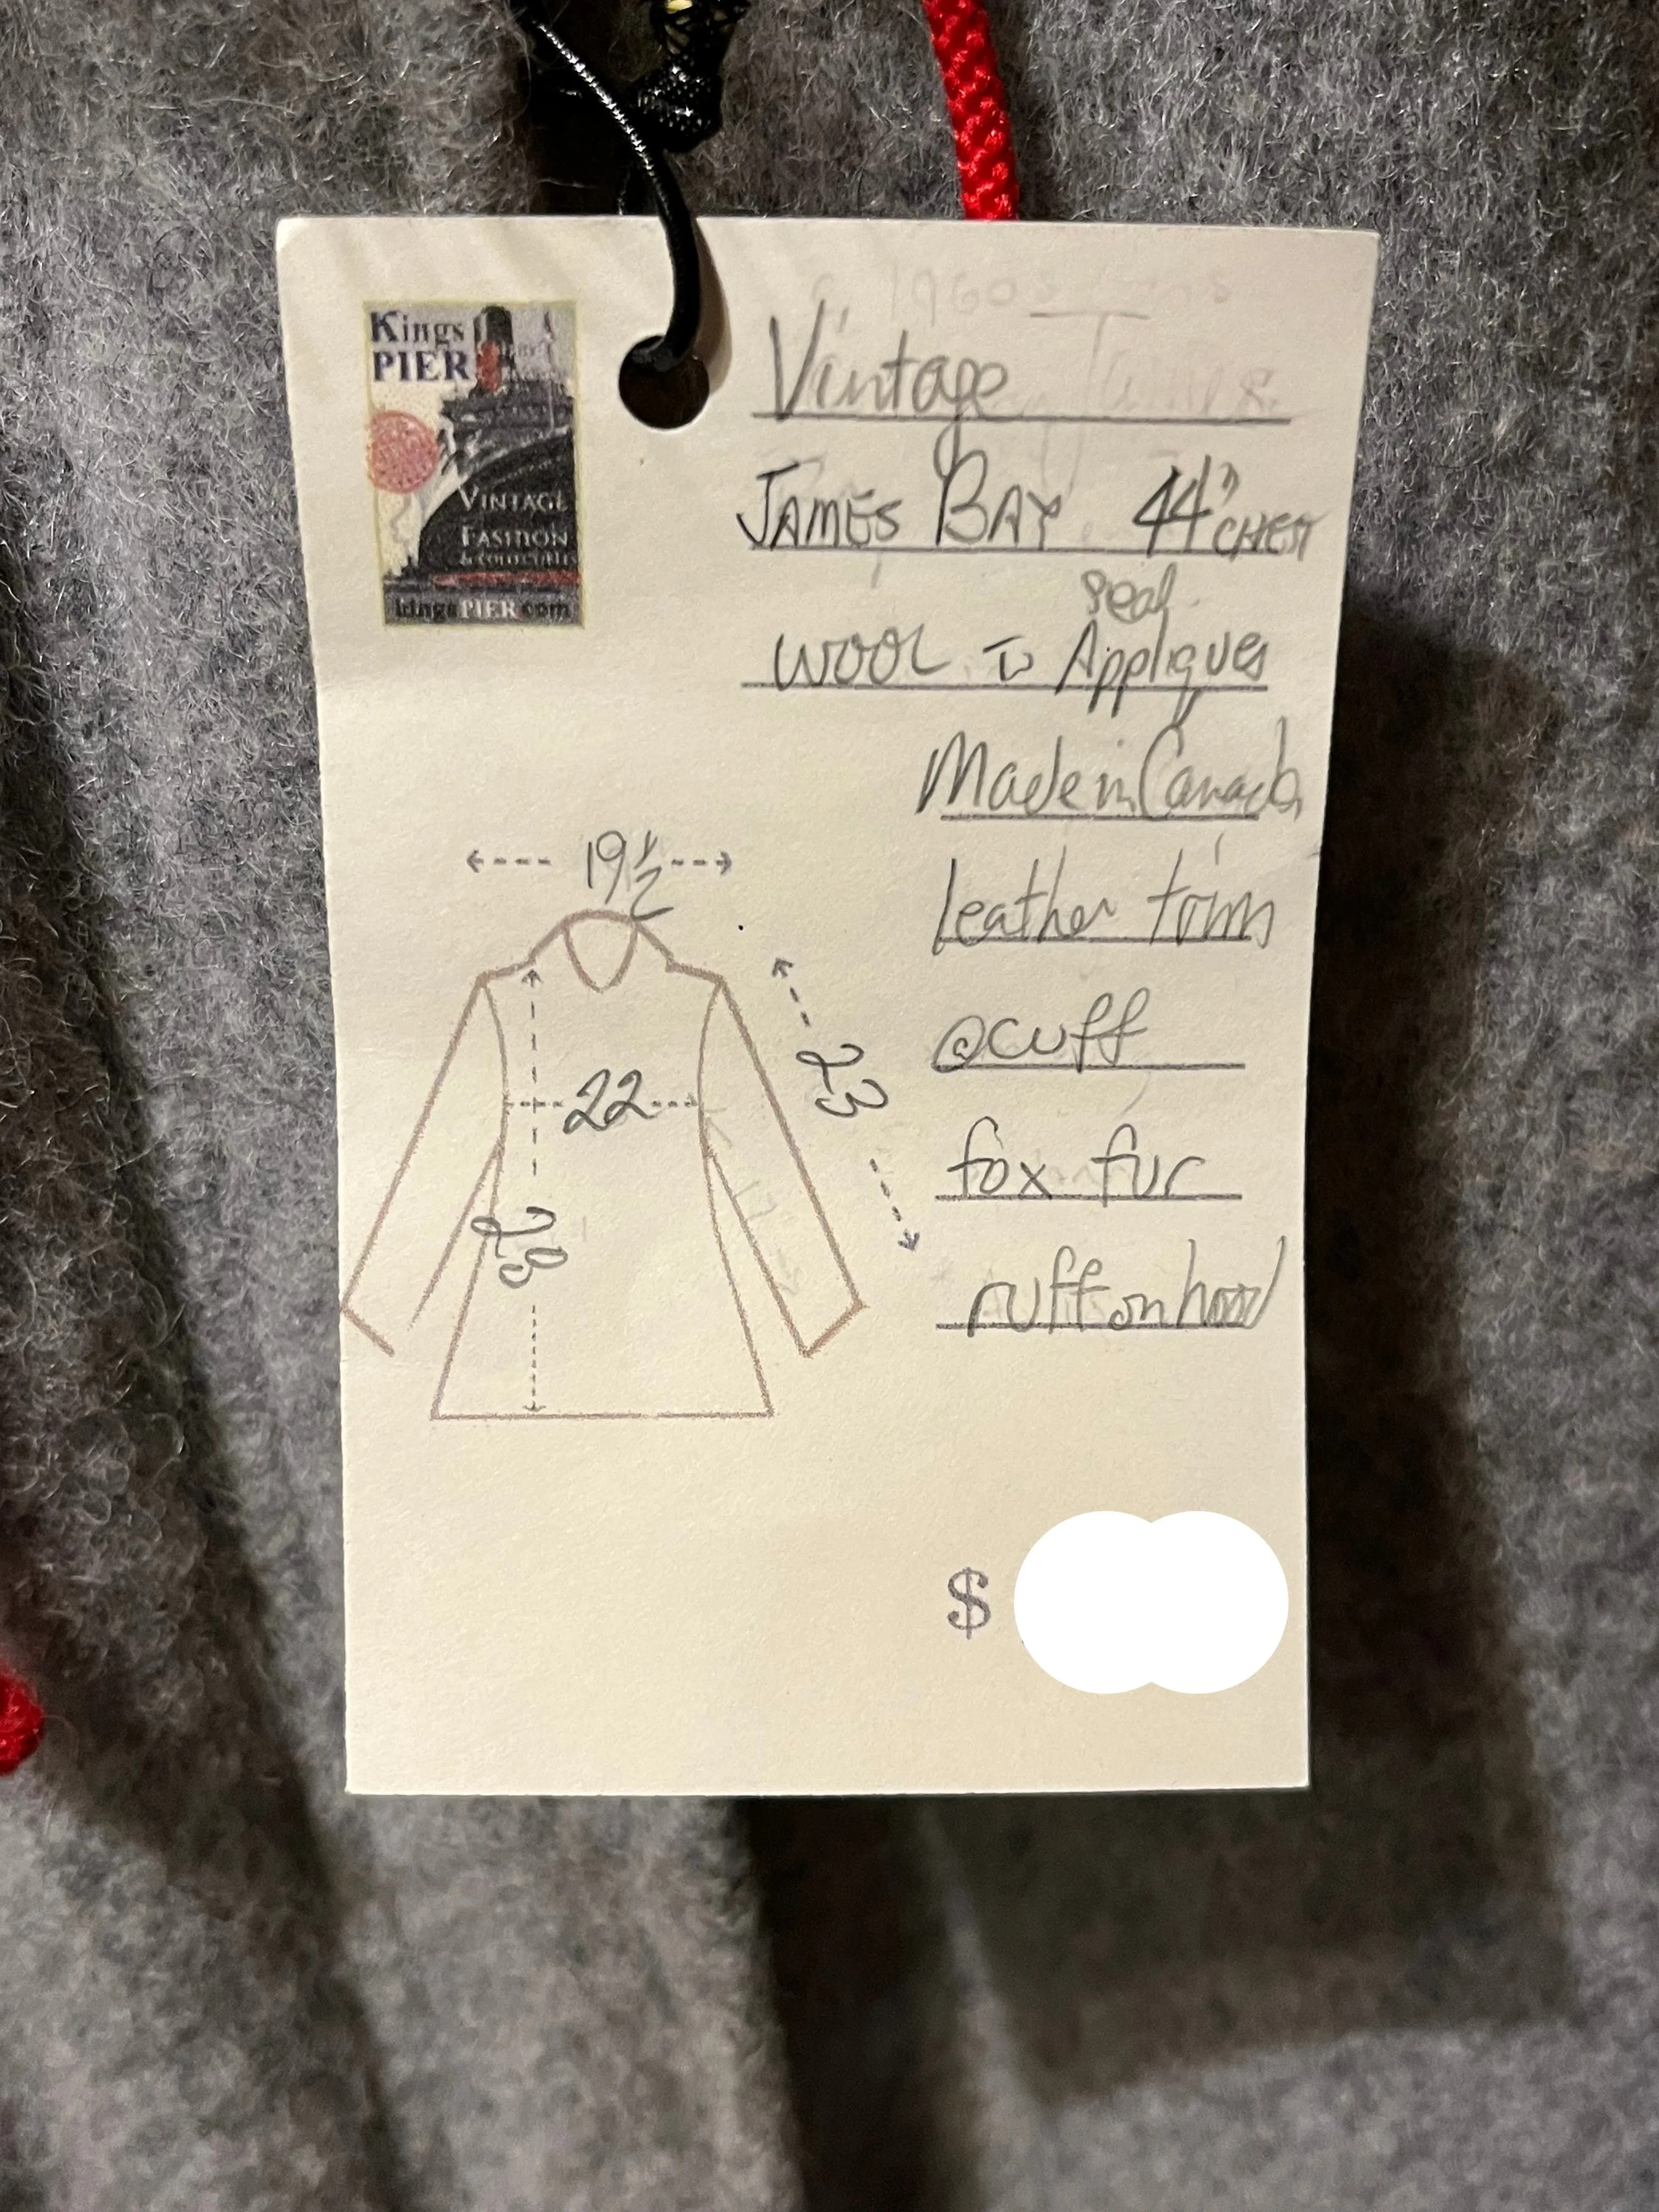 Kings
PIER
VINTAGE
FASHION
& COLLECTIBLES
kingsPIER.com
1960s
Vintage
JAMES BAY 44" CHEST
seal
WOOL c̄ Appliques
Made in Canada
leather trim
@cuff
fox fur
ruff on hood
19 1/2
23
22
28
$